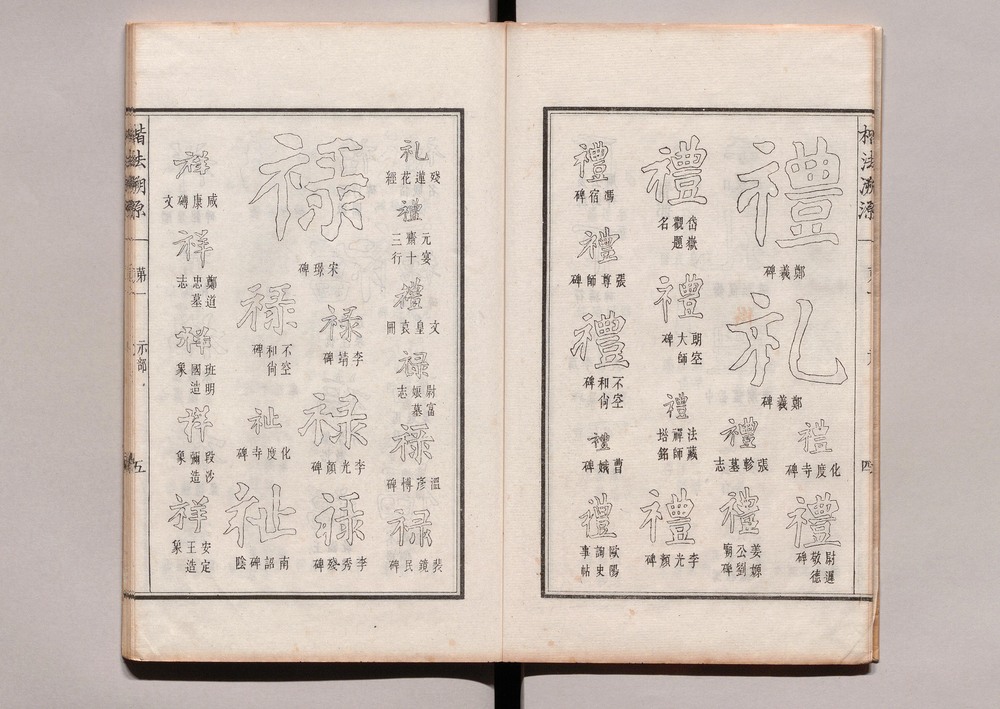 禮
鄭義碑
礼
鄭義碑
禮
化度寺碑
禮
尉遲敬德碑
禮
張軫墓志
禮
姜嫄公劉廟碑
禮
岱嶽觀題名
禮
大師碑
禮
法藏禪師塔銘
禮
李光顏碑
禮
馮宿碑
禮
張尊師碑
禮
不空和尙碑
禮
曹娥碑
禮
歐陽詢史事帖
楷法溯源
第一
示部
五
礼
殘蓮花經
禮
元宴齋十三行
禮
文皇哀冊
禄
尉富娘墓志
禄
溫彥博碑
禄
裴鏡民碑
禄
宋璟碑
禄
李靖碑
禄
李光顏碑
禄
李秀殘碑
禄
不空和尙碑
祉
化度寺碑
祉
南詔碑陰
祥
咸康磚文
祥
鄭道忠墓志
祥
班明國造象
祥
段沙彌造象
祥
安定王造象
楷法溯源
四